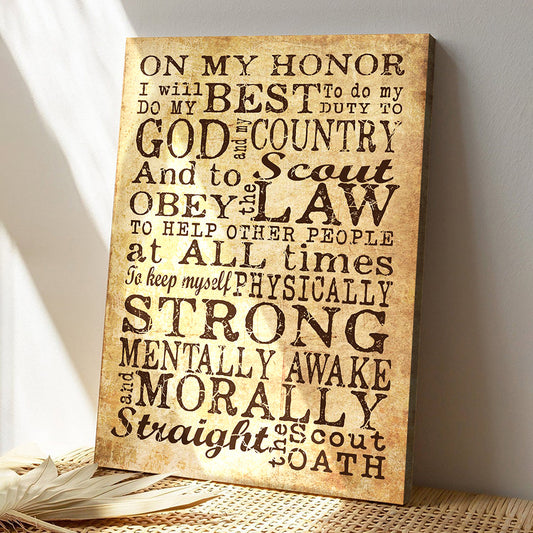 ON MY HONOR
I will DO MY BEST To do my DUTY TO
GOD and my COUNTRY
And to OBEY the Scout LAW
TO HELP OTHER PEOPLE
at ALL times
To keep myself PHYSICALLY
STRONG
MENTALLY AWAKE
and MORALLY
Straight the Scout OATH